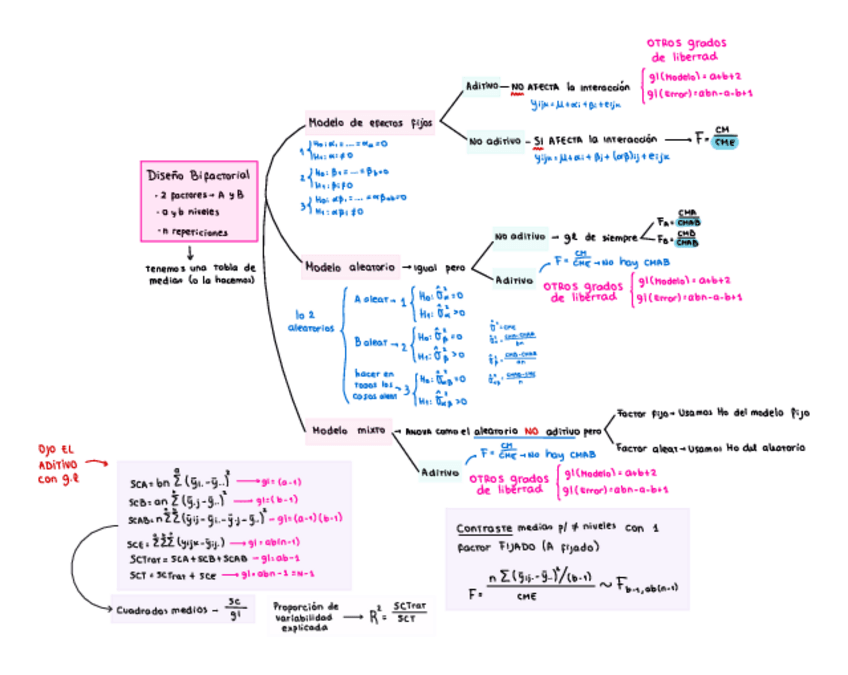 Diseño Bifactorial
· 2 factores → A y B
· a y b niveles
· n repeticiones
Tenemos una tabla de
medias (o la hacemos)
Modelo de efectos fijos
1 { H₀: α₁ = ... = αₐ = 0
H₁: αᵢ ≠ 0
2 { H₀: β₁ = ... = β_b = 0
H₁: βⱼ ≠ 0
3 { H₀: αβ₁ = ... = αβ_ab = 0
H₁: αβᵢ ≠ 0
Aditivo — NO AFECTA la interacción
yijk = μ + αi + βj + eijk
OTROS grados
de libertad
gl(Modelo) = a+b+2
gl(Error) = abn-a-b+1
No aditivo - SI AFECTA la interacción → F = CM/CME
yijk = μ + αi + βj + (αβ)ij + eijk
Modelo aleatorio → igual pero
No aditivo → gl de siempre
F_A = CMA/CMAB
F_B = CMB/CMAB
Aditivo
F = CM/CME → No hay CMAB
OTROS grados
de libertad
gl(Modelo) = a+b+2
gl(Error) = abn-a-b+1
lo 2
aleatorios
A aleat → 1 { H₀: σ̂²α = 0
H₁: σ̂²α > 0
B aleat → 2 { H₀: σ̂²β = 0
H₁: σ̂²β > 0
hacer en
todos los
casos aleat → 3 { H₀: σ̂²αβ = 0
H₁: σ̂²αβ > 0
σ̂² = CME
σ̂²α = CMA-CMAB/bn
σ̂²β = CMB-CMAB/an
σ̂²αβ = CMAB-CME/n
Modelo mixto → ANOVA como el aleatorio NO aditivo pero
Factor fijo → Usamos H₀ del modelo fijo
Factor aleat → Usamos H₀ del aleatorio
Aditivo
F = CM/CME → No hay CMAB
OTROS grados
de libertad
gl(Modelo) = a+b+2
gl(Error) = abn-a-b+1
OJO EL
ADITIVO
con g.l
SCA = bn Σ (ȳi. - ȳ..)² → gl = (a-1)
SCB = an Σ (ȳ.j - ȳ..)² → gl = (b-1)
SCAB = n ΣΣ (ȳij - ȳi. - ȳ.j - ȳ..)² → gl = (a-1)(b-1)
SCE = ΣΣΣ (yijk - ȳij.) → gl = ab(n-1)
SCTrat = SCA + SCB + SCAB → gl = ab-1
SCT = SCTrat + SCE → gl = abn-1 = N-1
Cuadrados medios - SC/gl
Proporción de
variabilidad
explicada → R² = SCTrat/SCT
Contraste medias p/ ≠ niveles con 1
factor FIJADO (A fijado)
F = n Σ (ȳij. - ȳ..)²/(b-1) / CME ~ F b-1, ab(n-1)